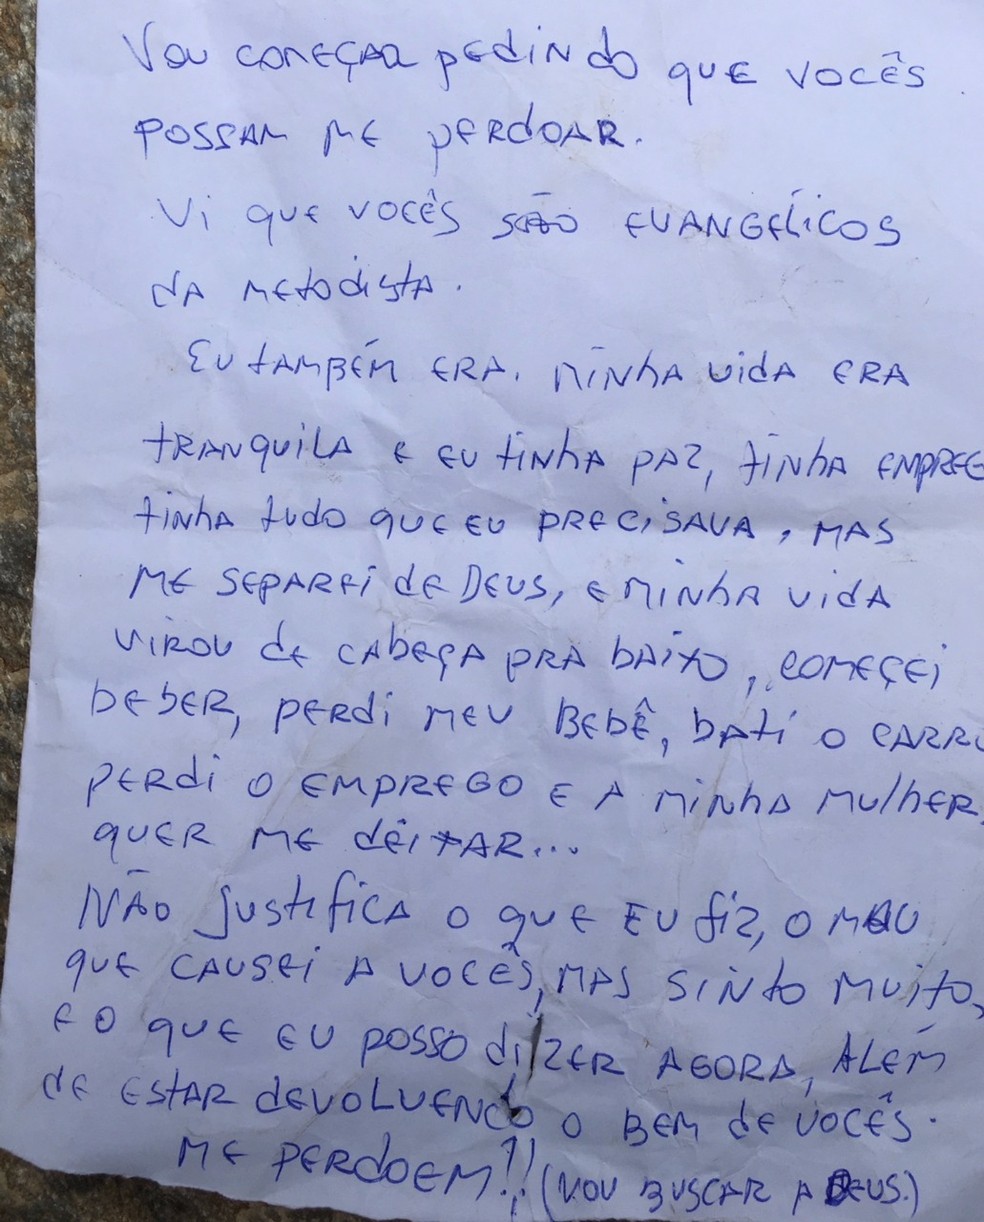 Vou começar pedindo que vocês
possam me perdoar.
Vi que vocês são evangélicos
da metodista.
Eu também era. Minha vida era
tranquila e eu tinha paz, tinha empreg
tinha tudo que eu precisava, mas
me separei de Deus, e minha vida
virou de cabeça pra baixo, começei
beber, perdi meu bebê, bati o carro
perdi o emprego e a minha mulher
quer me deixar...
Não justifica o que eu fiz, o mau
que causei a vocês, mas sinto muito,
e o que eu posso dizer agora, além
de estar devolvendo o bem de vocês.
Me perdoem!! (Vou buscar a Deus.)